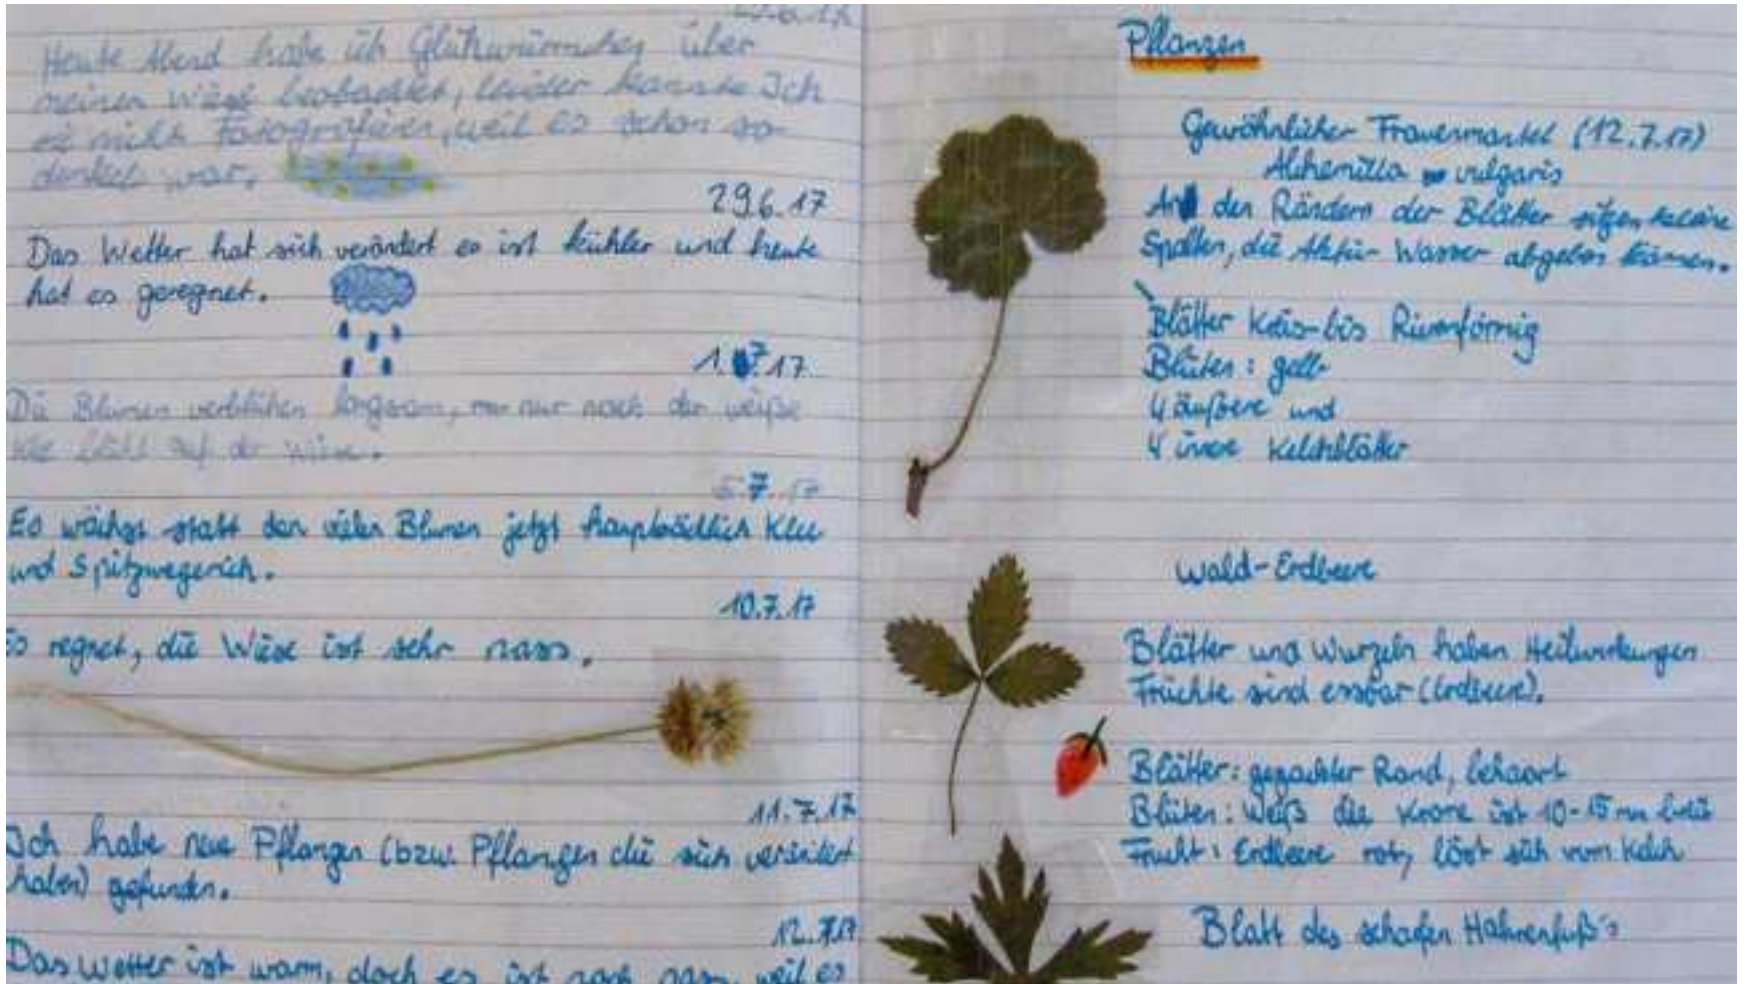 27.6.17
Heute Abend habe ich Glühwürmchen über
meinen Wiese beobachtet, leider konnte Ich
es nicht Fotografieren, weil es schon so
dunkel war.
29.6.17
Das Wetter hat sich verändert es ist kühler und heute
hat es geregnet.
1.7.17
Die Blumen verblühen langsam, nur noch der weiße
Klee blüht auf der Wiese.
5.7.17
Es wächst statt den vielen Blumen jetzt hauptsächlich Klee
und Spitzwegerich.
10.7.17
Es regnet, die Wiese ist sehr nass.
11.7.17
Ich habe neue Pflanzen (bzw. Pflanzen die sich verändert
haben) gefunden.
12.7.17
Das Wetter ist warm, doch es ist noch nass, weil es
Pflanzen
Gewöhnlicher Frauenmantel (12.7.17)
Alchemilla vulgaris
An den Rändern der Blätter sitzen kleine
Spalten, die Wasser abgeben können.
Blätter Kreis-bis Nierenförmig
Blüten: gelb
4 äußere und
4 innere Kelchblätter
Wald-Erdbeere
Blätter und Wurzeln haben Heilwirkungen
Früchte sind essbar (Erdbeere).
Blätter: gezackter Rand, behaart
Blüten: Weiß die Krone ist 10-15 mm breit
Frucht: Erdbeere rot, löst sich vom Kelch
Blatt des scharfen Hahnenfuß's